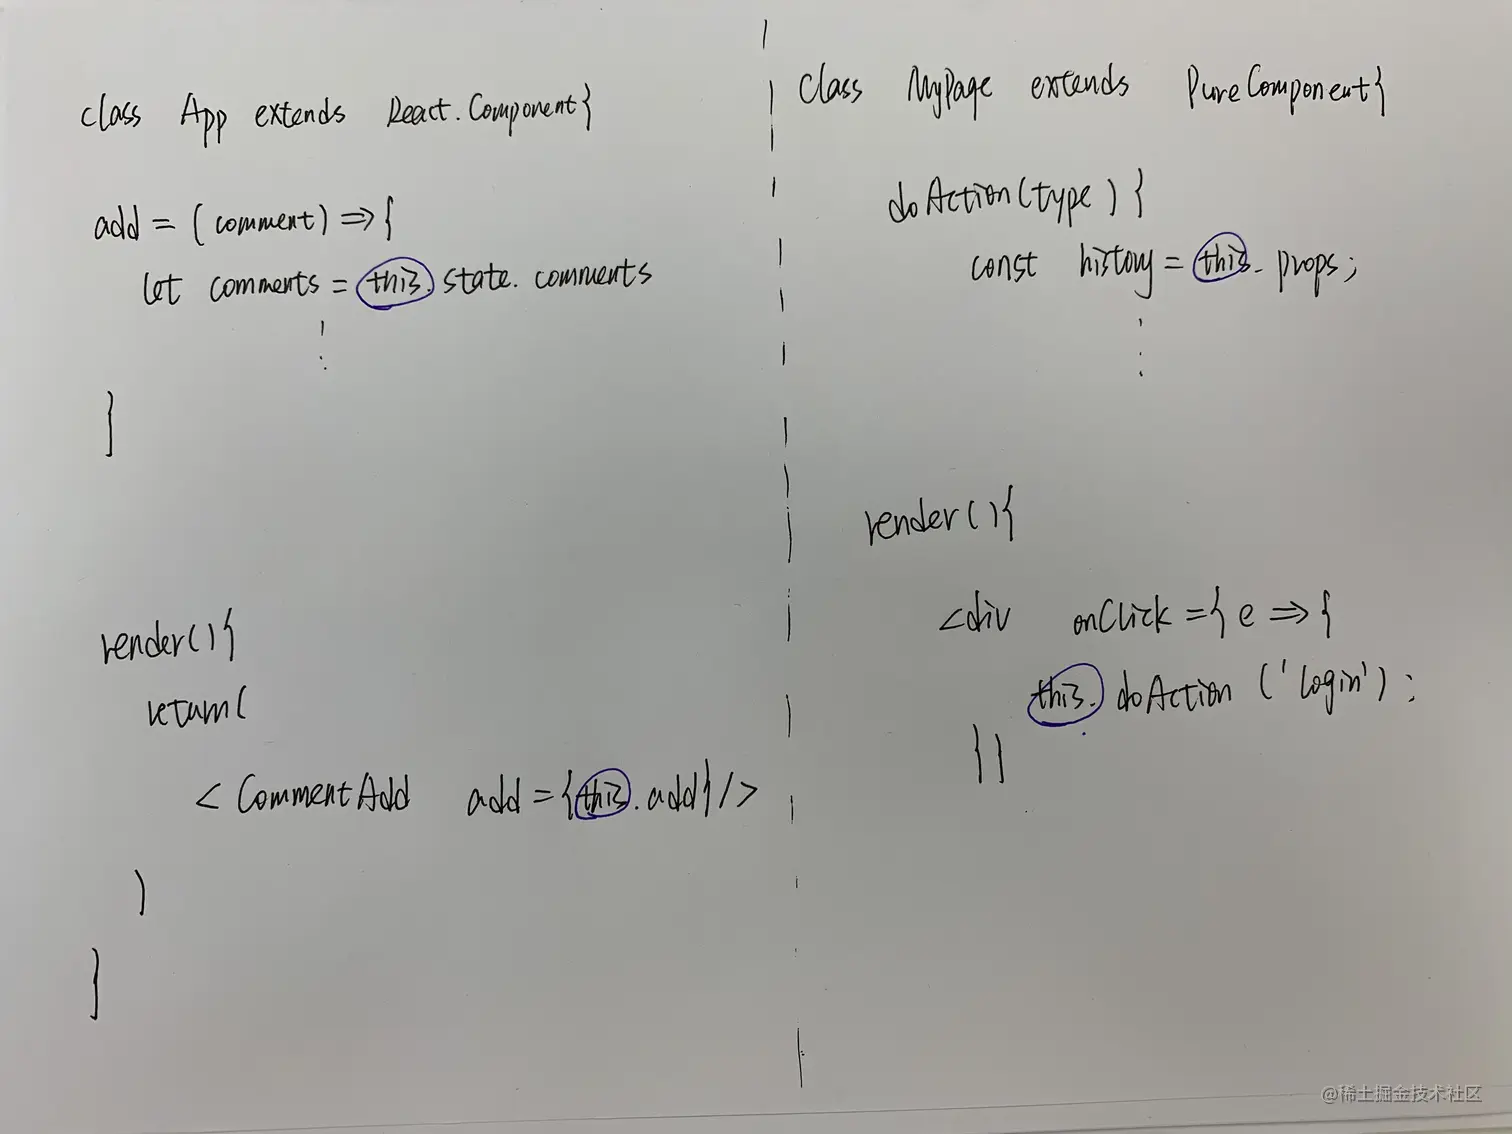 class App extends React.Component{
add = (comment) => {
let comments = this.state.comments
}
render(){
return(
< CommentAdd add = {this.add} />
)
}
class MyPage extends PureComponent{
doAction(type) {
const history = this.props;
render(){
<div onClick = { e => {
this.doAction('login');
}}
@稀土掘金技术社区